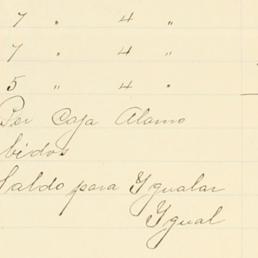 7 " 4 "
7 " 4 "
5 " 4 "
Per Caja Alamo
bidos
Saldo para Ygualar
Ygual